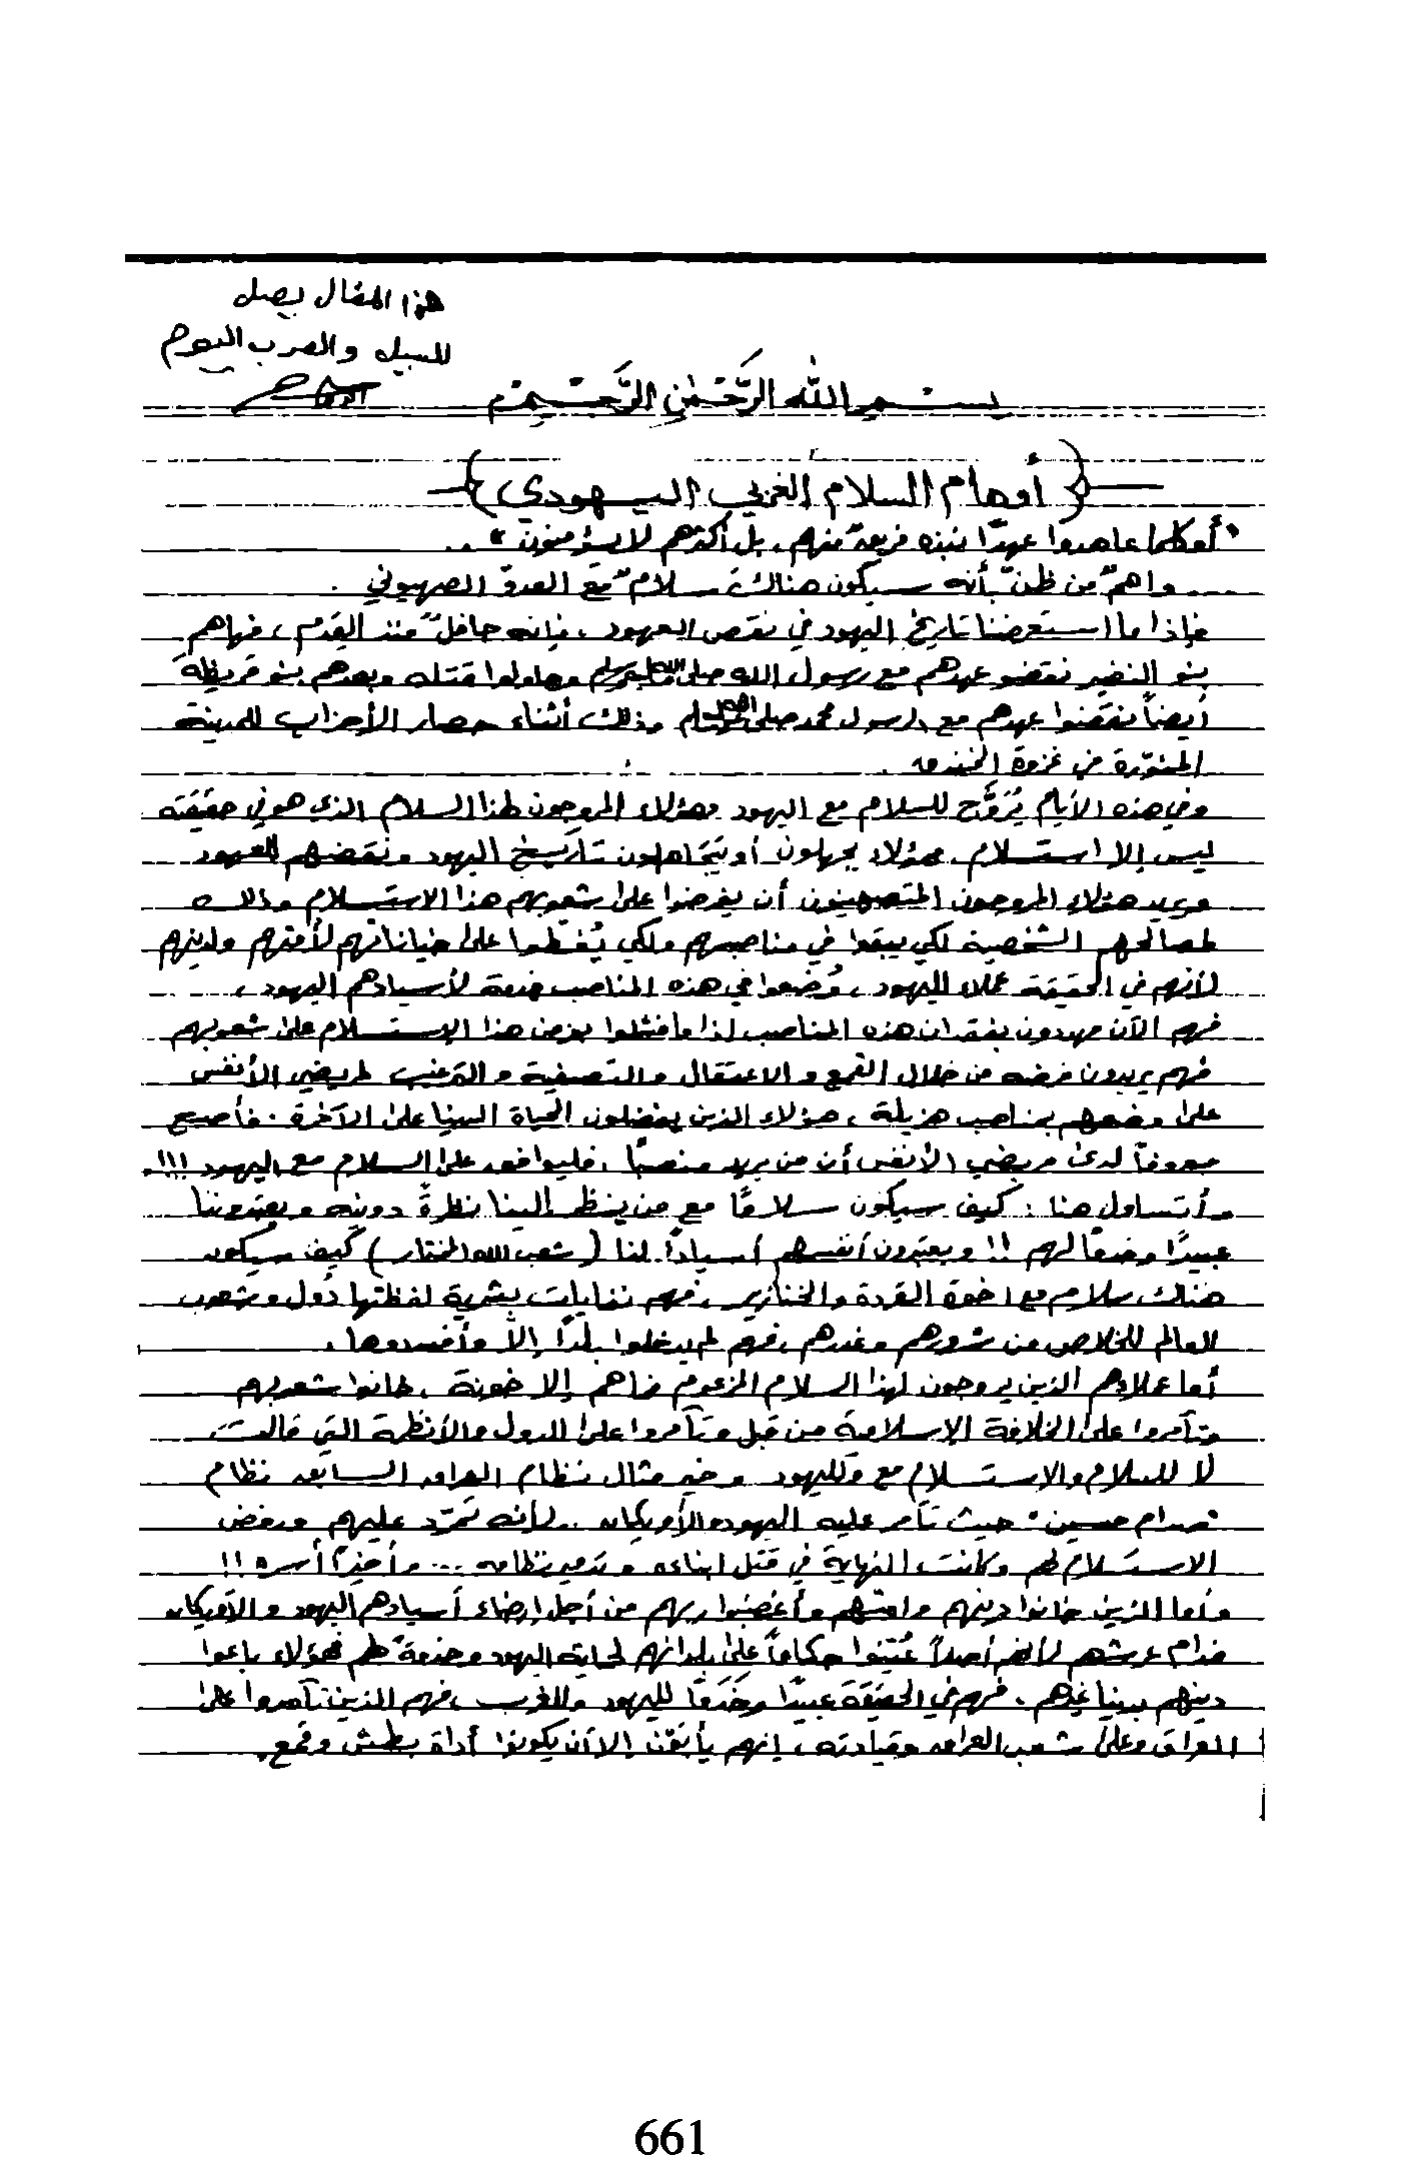 هذا المقال يصل
للسبيل والعرب اليوم
بسم الله الرَّحْمٰنِ الرَّحِيمِ
﴿أوهام السلام الغربي اليهودي﴾
"أَوكلما عاهدوا عهدًا نبذه فريقٌ منهم، بل أكثرهم لا يؤمنون" ..
.... واهمٌ من ظنّ بأنه سيكون هناك سلامٌ مع العدوّ الصهيوني .
فإذا ما استعرضنا تاريخ اليهود في نقض العهود، فإنه حافلٌ منذ القِدَم، فها هم
بنو النضير نقضو عهدهم مع رسول الله صلى الله عليه وسلم وحاولوا قتله وبعدهم بنو قريظةَ
أيضاً نقضوا عهدهم مع الرسول محمد صلى الله عليه وسلم وذلك أثناء حصار الأحزاب للمدينة
المنوّرة في غزوة الخندق .
وفي هذه الأيام يُرَوَّج للسلام مع اليهود وهؤلاء المروجون لهذا السلام الذي هو في حقيقته
ليس إلا استسلام. هؤلاء يجهلون أو يَتجاهلون تاريخ اليهود ونقضهم للعهود
ويريد هؤلاء المروجون المتصهينون أن يفرضوا على شعوبهم هذا الاستسلام وذلك
لمصالحهم الشخصية لكي يبقوا في مناصبهم ولكي يُغطّوا على خياناتهم لأمتهم ولدينهم
لأنهم في الحقيقة عملاء لليهود، وُضعوا في هذه المناصب خدمة لأسيادهم اليهود،
فهم الآن مهددون بفقدان هذه المناصب إذا ما فشلوا بفرض هذا الاستسلام على شعوبهم
فهم يريدون فرضه من خلال القمع والاعتقال والتصفية والترغيب لمريضي الأنفس
على وضعهم بمناصب هزيلة، هؤلاء الذين يفضلون الحياة الدنيا على الآخرة. فأصبح
معروفاً لدى مريضي الأنفس أن من يريد منصبًا، فليوافق على السلام مع اليهود !!!.
وأتساءل هنا: كيف سيكون سلامًا مع من ينظر إلينا نظرةً دونيه ويعتبروننا
عبيدًا وخدمًا لهم !! ويعتبرون أنفسهم أسيادًا لنا (شعب الله المختار) كيف سيكون
هناك سلام مع اخوة القردة والخنازير، فهم نفايات بشرية لفظتها دُول وشعوب
العالم للخلاص من شرورهم وغدرهم، فهم لم يدخلوا بلدًا إلاّ وأفسدوها.
أما عملاؤهم الذين يروجون لهذا السلام المزعوم فما هم إلا خونة، خانوا شعوبهم
وتآمروا على الخلافة الإسلامية من قبل وتآمروا على الدول والأنظمة التي قالت
لا للسلام والاستسلام مع ولليهود وخير مثال نظام العراق السابق نظام
"صدام حسين" حيث تآمر عليه اليهود والأمريكان .. لأنه تمرّد عليهم ورفض
الاستسلام لهم وكانت النهاية في قتل ابناءه وتدمير نظامه ... وأخيرًا أسره !!
وأما الذين خانوا دينهم وامتهم وأغضبوا ربهم من أجل إرضاء أسيادهم اليهود والأمريكان
فدام عرشهم لأنهم أصلاً عُيّنوا حكاماً على بلدانهم لحماية اليهود وخدمةً لهم فهؤلاء باعوا
دينهم بدنيا غيرهم. فهم في الحقيقة عبيدًا وخَدَمًا لليهود وللغرب، فهم الذين تآمروا على
العراق وعلى شعب العراق وقيادته، إنهم يأبَوْن إلا أن يكونوا أداة بطش وقمع.
661